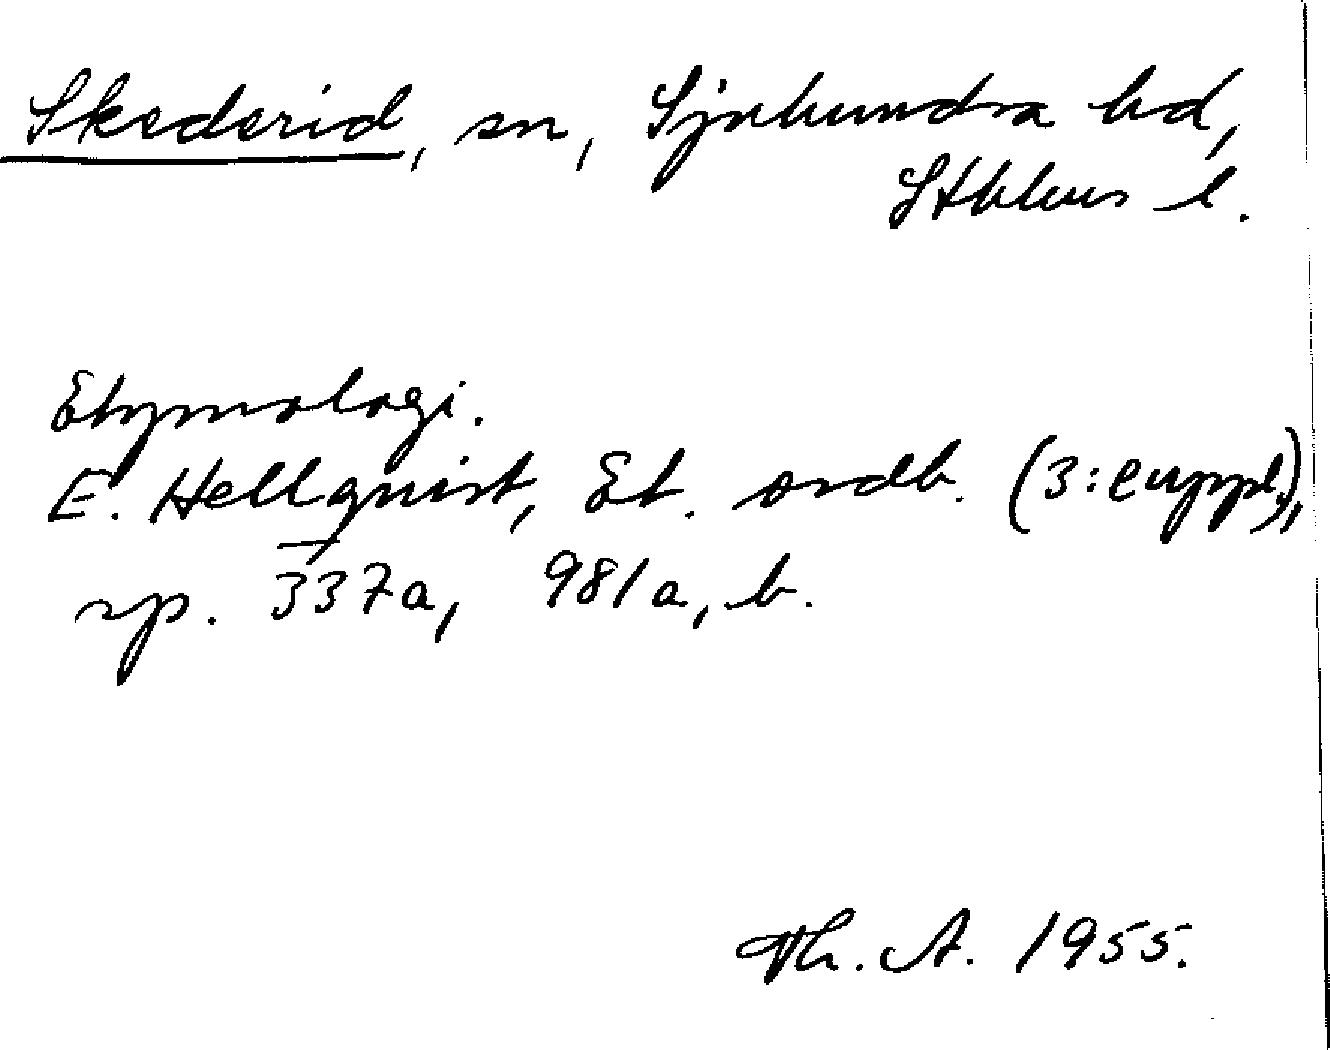 Skederid, sn, Sjuhundra hd,
Sthlms l.
Etymologi.
E. Hellquist, Et. ordb. (3:e uppl.),
sp. 337a, 981a, b.
Th. A. 1955.